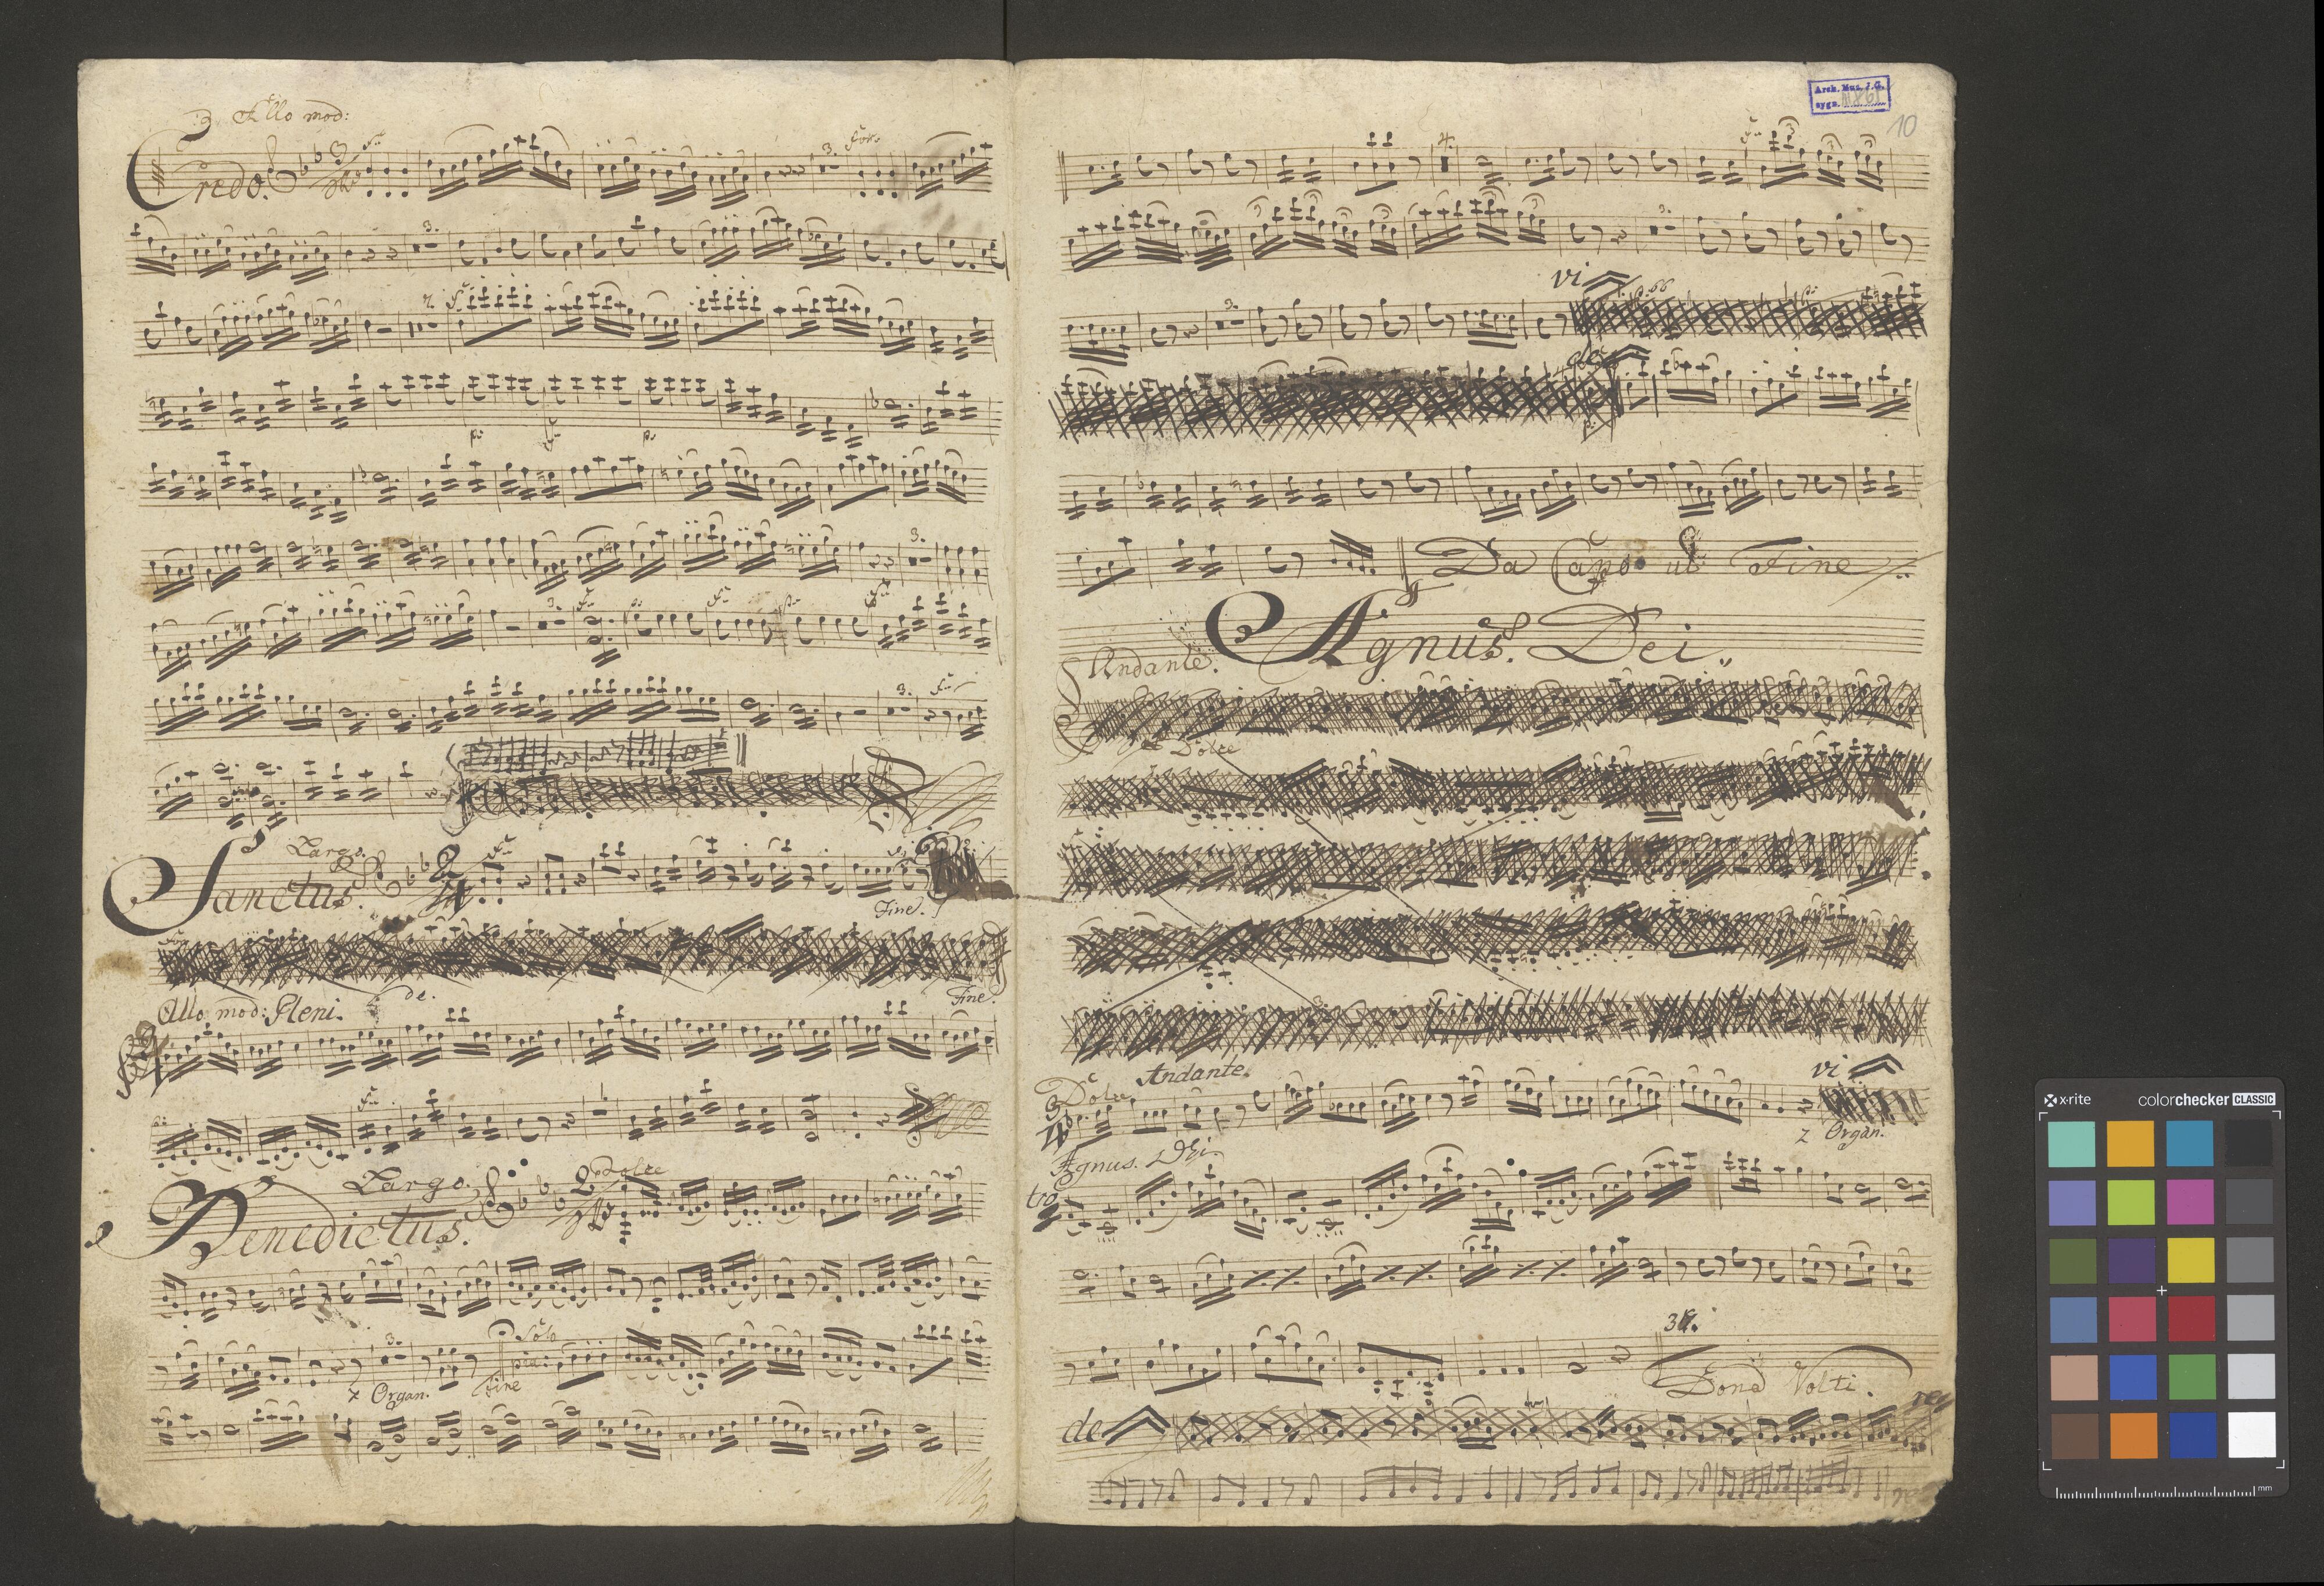 Allo mod:
Credo.
3.
for.
3.
p:
p:
3.
3.
3.
Largo.
Sanctus.
2
4
Fine.
de.
Fine.
Allo mod: Pleni.
Largo.
Dolce
Benedictus.
3.
Solo
pia:
z Organ.
Fine
Arch. Muz. J. G.
sygn.
10
4.
3
3.
vi
3.
de
Da Capo al Fine
Agnus Dei.
Andante.
Dolce
Dolce
Andante.
vi
3
4
z Organ.
Agnus Dei.
Dona Volti.
de
x-rite
colorchecker CLASSIC
mm